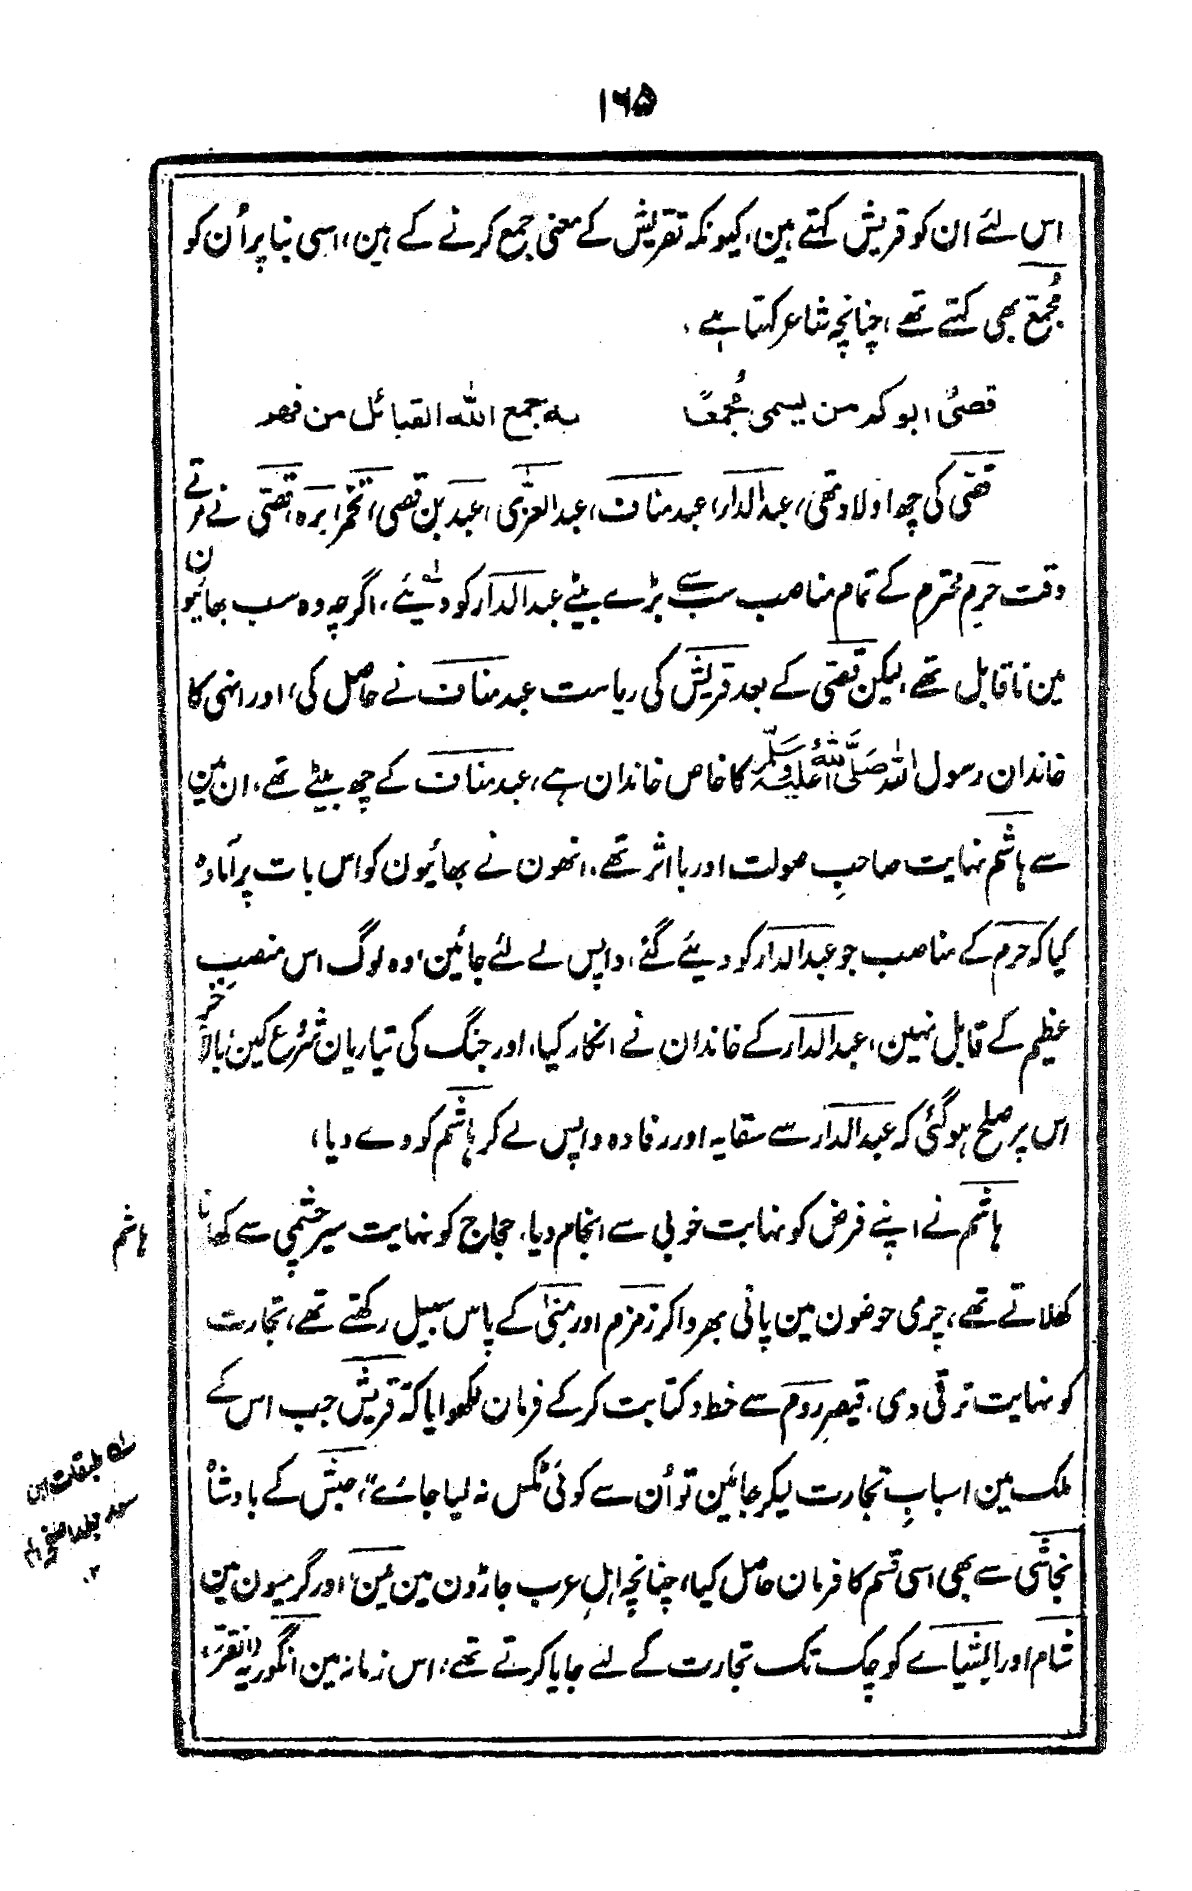 ۱۶۵
اس لئے ان کو قریش کہتے ہین، کیونکہ تقریش کے معنی جمع کرنے کے ہین، اسی بنا پر اُن کو
مُجمّع بھی کہتے تھے، چنانچہ شاعر کہتا ہے،
قصیٌ ابوکم من یسمی مُجمعًا بہ جمع اللہ القبائل من فھر
قصّی کی چھ اولاد تھی، عبدالدار، عبد مناف، عبدالعزّٰی، عبد بن قصی، تخمر، برہ، قصّی نے مرتے
وقت حرمِ محترم کے تمام مناصب سب سے بڑے بیٹے عبدالدار کو دئیے، اگرچہ وہ سب بھائیون
مین ناقابل تھے، لیکن قصّی کے بعد قریش کی ریاست عبد مناف نے حاصل کی، اور انہی کا
خاندان رسول اللہ صلَّی اللہ علیہ وسلّم کا خاص خاندان ہے، عبد مناف کے چھ بیٹے تھے، ان مین
سے ہاشم نہایت صاحبِ صولت اور با اثر تھے، انھون نے بھائیون کو اس بات پر آمادہ
کیا کہ حرم کے مناصب جو عبدالدار کو دئیے گئے، واپس لے لئے جائین، وہ لوگ اس منصبِ
عظیم کے قابل نہین، عبدالدار کے خاندان نے انکار کیا، اور جنگ کی تیاریان شروع کین، بالآخر
اس پر صلح ہوگئی کہ عبدالدار سے سقایہ اور رفادہ واپس لے کر ہاشم کو دے دیا،
ہاشم
ہاشم نے اپنے فرض کو نہایت خوبی سے انجام دیا، حجاج کو نہایت سیر چشمی سے کھانا
کھلاتے تھے، چرمی حوضون مین پانی بھروا کر زمزم اور منیٰ کے پاس سبیل رکھتے تھے، تجارت
کو نہایت ترقی دی، قیصرِ روم سے خط و کتابت کر کے فرمان لکھوایا کہ قریش جب اس کے
ملک مین اسبابِ تجارت لیکر جائین تو اُن سے کوئی ٹکس نہ لیا جائے"، حبش کے بادشاہ
نجاشی سے بھی اسی قسم کا فرمان حاصل کیا، چنانچہ اہلِ عرب جاڑون مین یمن، اور گرمیون مین
شام اور ایشیاے کوچک تک تجارت کے لیے جایا کرتے تھے، اس زمانہ مین انگوریہ (انقرہ)
لہ طبقات ابن
سعد جلد ا صفحہ